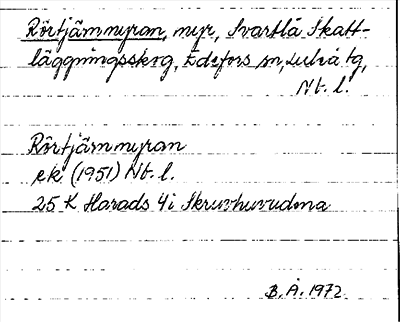 Rörtjärnmyran, myr, Svartlå Skatt-
läggningsskog, Edefors sn, Luleå tg,
Nb. l.
Rörtjärnmyran
ek (1951) Nb. l.
25 K Harads 4i Skruvhuvudena
B. Å. 1972